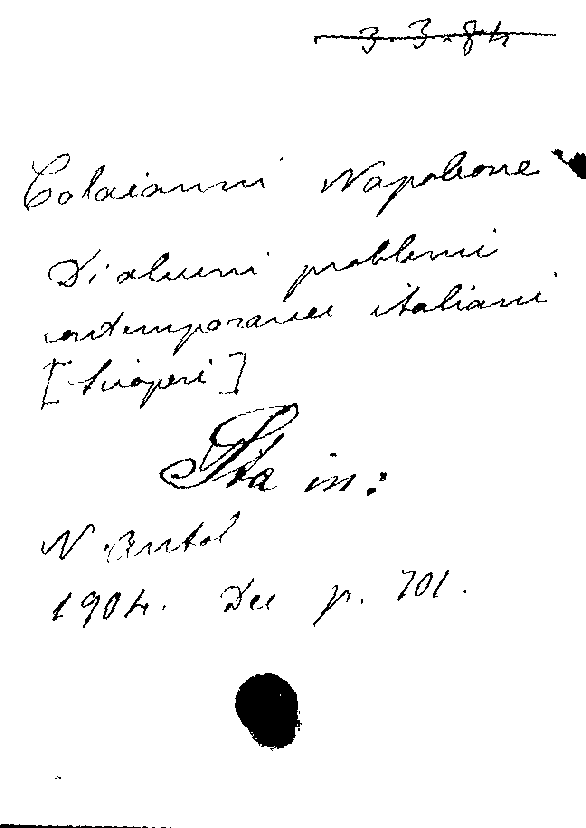 3.3.84
Colaianni Napoleone
Di alcuni problemi
contemporanei italiani
[Scioperi]
Sta in:
N. Antol
1904. Dec p. 701.